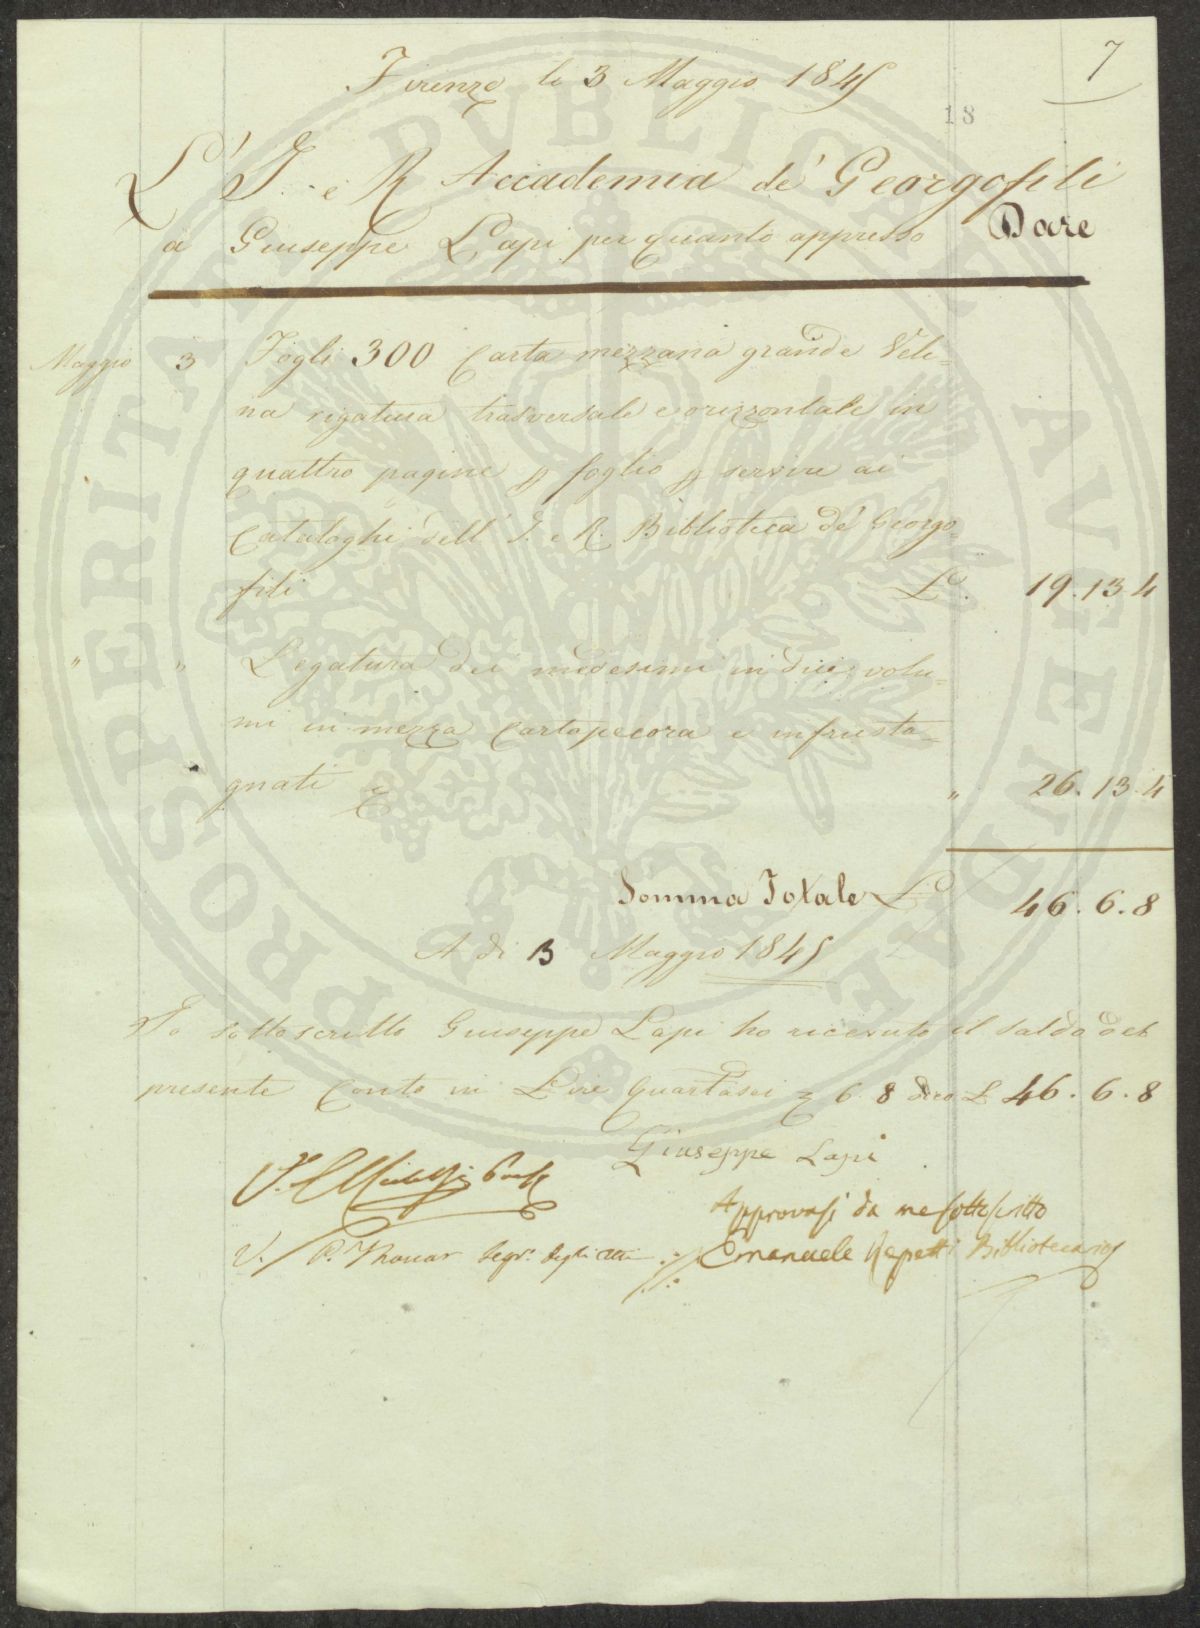 7
Firenze li 3 Maggio 1845
18
L' I. e R Accademia de' Georgofili
Dare
a Giuseppe Lapi per quanto appresso
Maggio 3 Fogli 300 Carta mezzana grande Veli=
na rigatura trasversale e orizzontale in
quattro pagine p foglio p servire ai
Cataloghi dell' I. e R. Biblioteca de' Georgo=
fili L. 19.13.4
" " Legatura dei medesimi in dieci volu=
mi in mezza Cartapecora e infrusta=
gnati " 26.13.4
Somma Totale L 46.6.8
A di 13 Maggio 1845
Io sottoscritto Giuseppe Lapi ho ricevuto il saldo del
presente Conto in Lire Quartasei 6.8 dico L 46.6.8
Giuseppe Lapi
V.
Approvasi da me sottoscritto
V. P. Thouar Segr. degli Atti
Emanuele Repetti Bibliotecario
PROSPERITATI PVBLICAE AVGENDAE